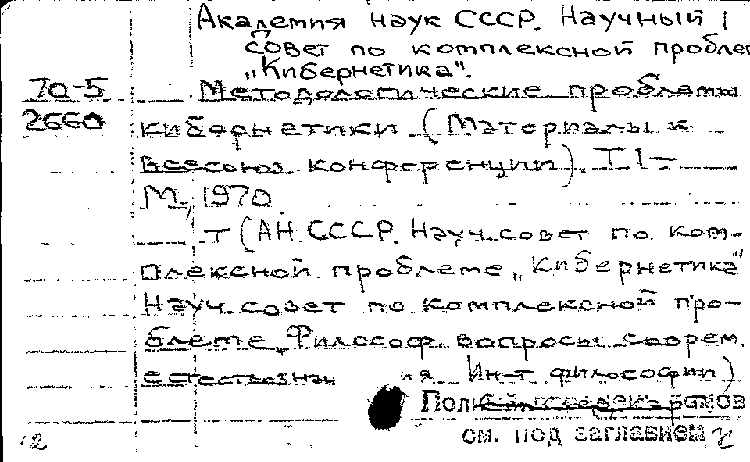 Академия наук СССР. Научный
совет по комплексной пробле
„Кибернетика".
70-5 Методологические проблемы
2660 кибернетики (Материалы к
всесоюз. конференции). Т 1-
М, 1970
Т (АН СССР. Науч. совет по ком-
плексной проблеме „Кибернетика"
Науч. совет по комплексной про-
блеме „Философ. вопросы соврем.
естествознан ия Ин-т философии)
см. под заглавием